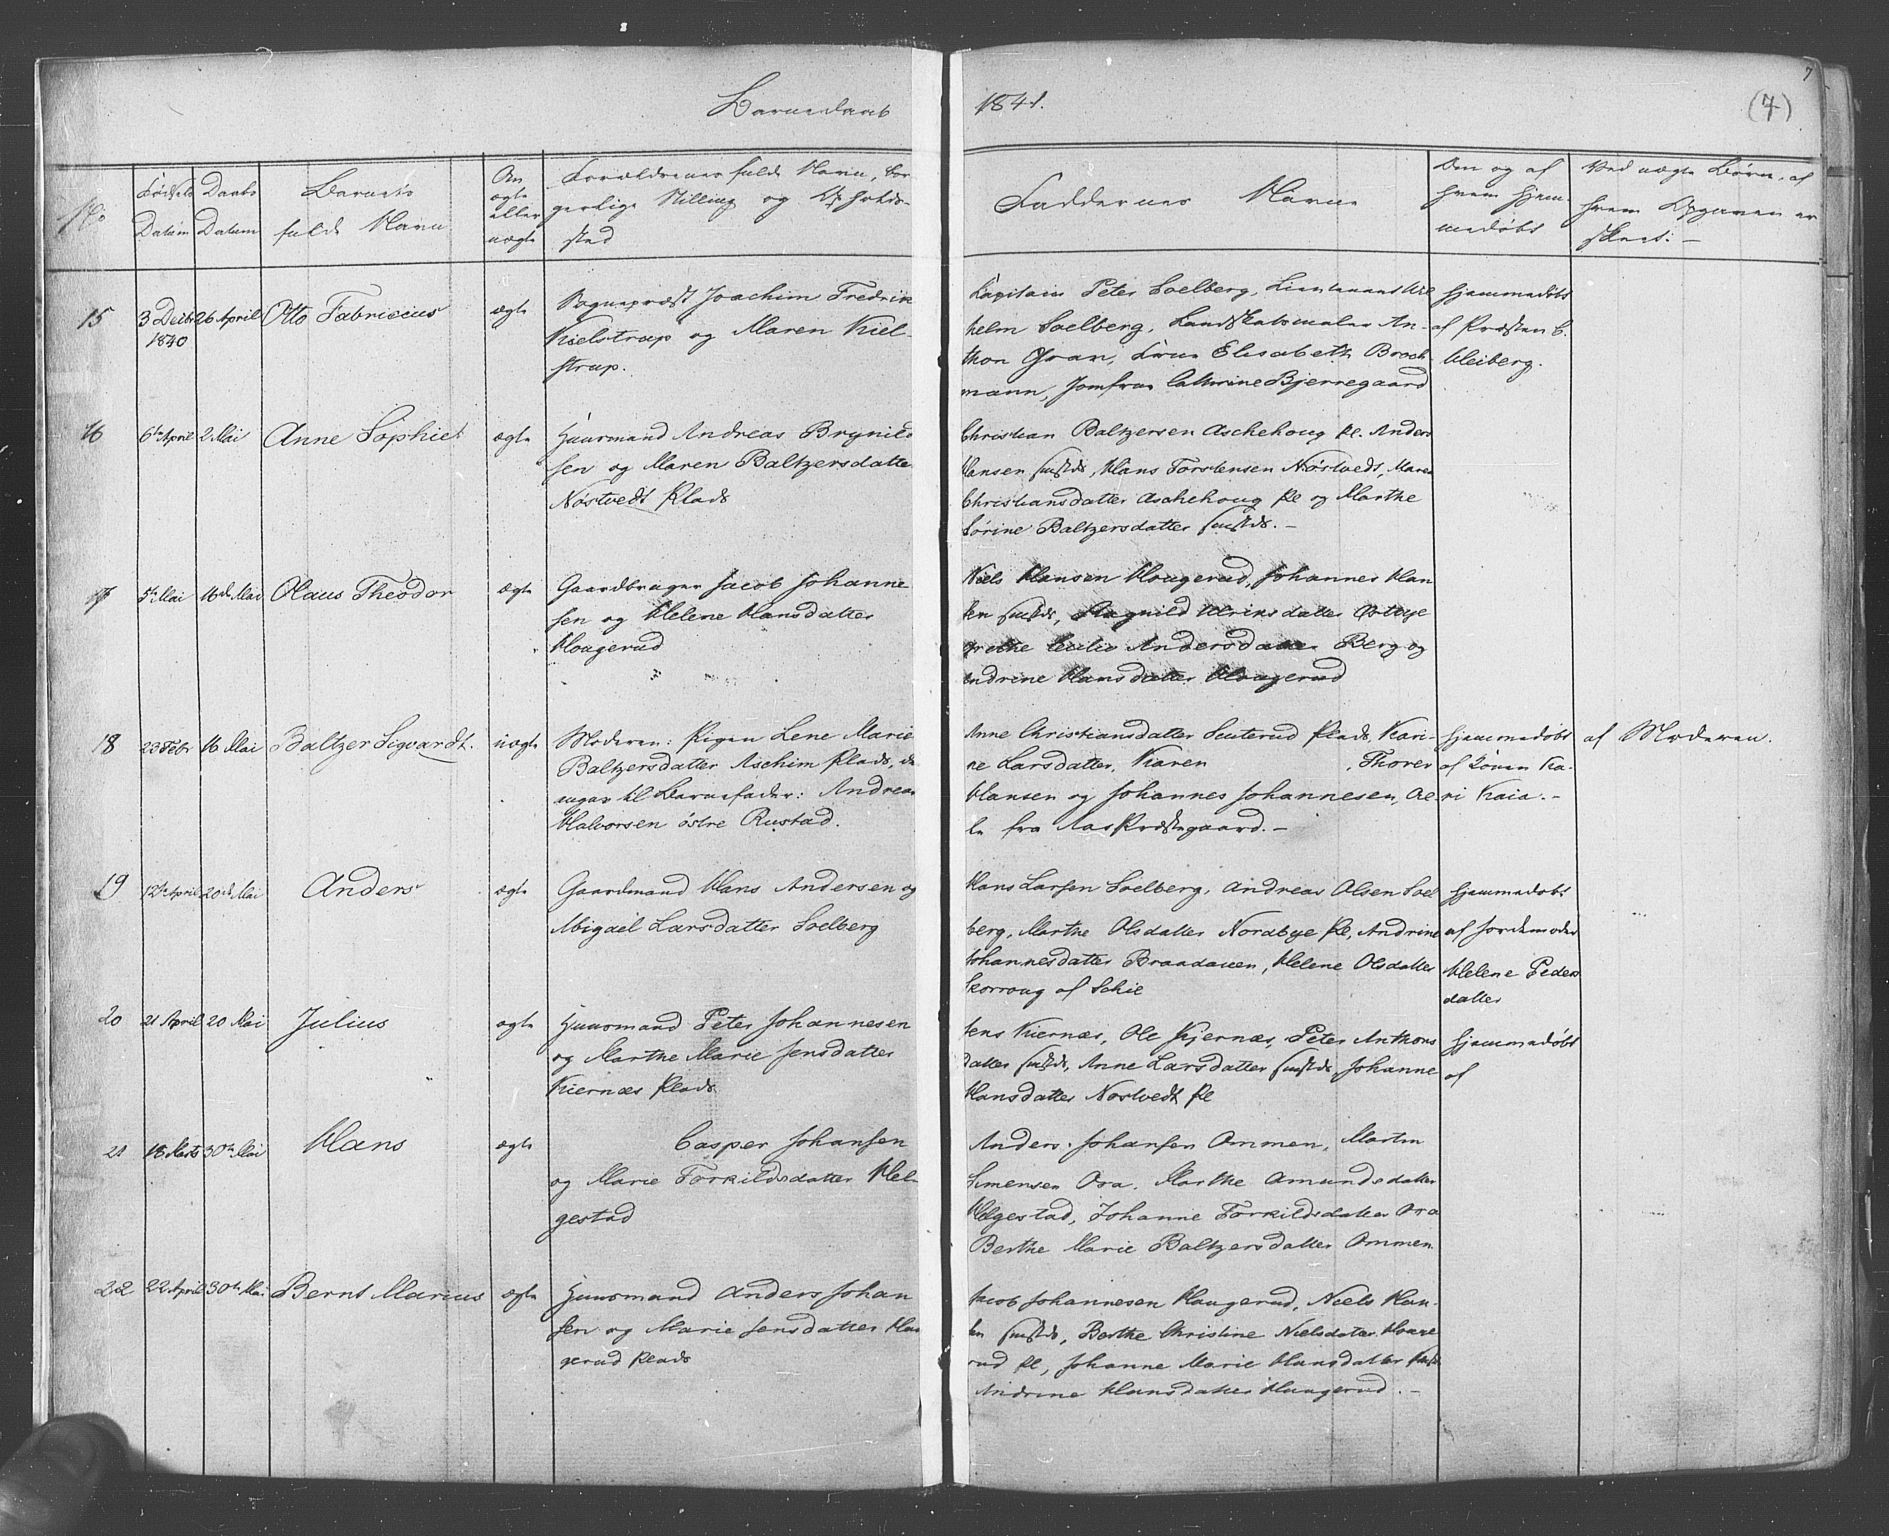 Barnedaab
1841.
7
(7)
No
Fødsels Datum
Daabs Datum
Barnets fulde Navn
Om ægte eller uægte
Forældrenes fulde Navn, borgerlige Stilling og Opholdssted
Faddernes Navne
Om og af hvem hjemmedøbt
Ved uægte Børn, af hvem Opgaven er skeet. –
15
3 Decbr 1840
26 April
Otto Fabricius
ægte
Sognepræst Joachim Fredrik
Kielstrup og Maren Kiel-
strup.
Capitain Peter Soelberg, Lieutenant Wil
helm Soelberg, Landskabsmaler An-
thon Gran, Frue Elisabeth Broch
mann, Jomfrue Cathrine Bjerregaard
hjemmedøbt
af Præsten
Kleiberg.
16
6te April
2 Mai
Anne Sophie
ægte
Huusmand Andreas Brynild
sen og Maren Baltzersdatter
Nøstvedt Plads
Christian Baltzersen Aschehoug Pl. Anders
Hansen sustds, Hans Torstensen Nøstvedt, Maren
Christiansdatter Aschehoug Pl og Marthe
Sørine Baltzersdatter sustds. –
17
5te Mai
16de Mai
Olaus Theodor
ægte
Gaardbruger Jacob Johanne
sen og Helene Hansdatter
Hougerud
Niels Hansen Hougerud, Johannes Han
sen sustds, Ragnild Ulriksdatter
Grethe Cecilie Andersdatter Berg og
Andrine Hansdatter Hougerud
18
23 Febr
16 Mai
Baltzer Sigvardt.
uægte
Moderen: Pigen Lene Marie
Baltzersdatter Aschim Plads,
angav til Barnefader: Andreas
Halvorsen østre Rustad.
Anne Christiansdatter Senterud Plads, Kari-
ne Larsdatter, Karen , Thorer
Hansen og Johannes Johannesen, Al-
le fra Aas Præstegaard. –
hjemmedøbt
af Ka-
ri Kaia. –
af Moderen.
19
12te April
20de Mai
Anders
ægte
Gaardmand Hans Andersen og
Abigael Larsdatter Soelberg
Hans Larsen Soelberg, Andreas Olsen Soel
berg, Marthe Olsdatter Nordbye Pl, Andrine
Johannesdatter Braadauen, Helene Olsdatter
Skorroug af Schie
hjemmedøbt
af Jordemoder
Helene Peders
datter
20
21 April
20 Mai
Julius
ægte
Huusmand Peter Johannesen
og Marthe Marie Jensdatter
Kiernæs Plads
Jens Kiernæs, Ole Kjernæs, Peter Anthons
datter sustds, Anne Larsdatter sustds, Johanne
Hansdatter Nøstvedt Pl
hjemmedøbt
af
21
18 Marts
30te Mai
Hans
ægte
Casper Johansen
og Marie Torkildsdatter Hel-
gestad
Anders Johansen Ommen, Martin
Simensen Ora, Marthe Amundsdatter
Helgestad, Johanne Torkildsdatter Ora
Berthe Marie Baltzersdatter Ommen
22
22 April
30te Mai
Bernt Marius
ægte
Huusmand Anders Johan
sen og Marie Jensdatter Hou
gerud Plads
Jacob Johannesen Hougerud, Niels Han-
sen sustds, Berthe Christine Nielsdatter Houge
rud Pl, Johanne Marie Hansdatter sustds
Andrine Hansdatter Hougerud. –